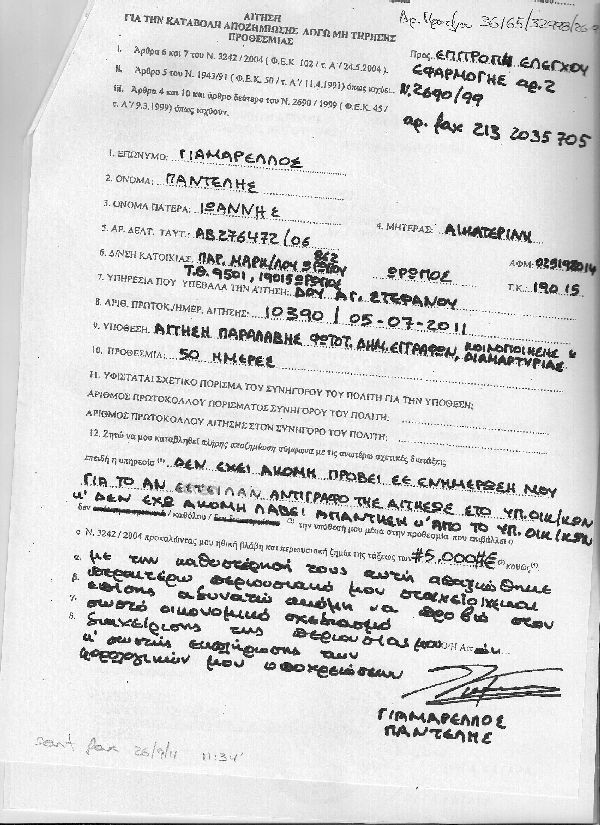 Αρ. Πρωτ/λου 36/65/32928/26-9
ΑΙΤΗΣΗ
ΓΙΑ ΤΗΝ ΚΑΤΑΒΟΛΗ ΑΠΟΖΗΜΙΩΣΗΣ ΛΟΓΩ ΜΗ ΤΗΡΗΣΗΣ
ΠΡΟΘΕΣΜΙΑΣ
i. Άρθρα 6 και 7 του Ν. 3242 / 2004 ( Φ.Ε.Κ. 102 / τ. Α'/ 24.5.2004 ).
ii. Άρθρο 5 του Ν. 1943/91 ( Φ.Ε.Κ. 50 / τ. Α'/ 11.4.1991) όπως ισχύει.
iii. Άρθρα 4 και 10 και άρθρο δεύτερο του Ν. 2690 / 1999 ( Φ.Ε.Κ. 45 /
τ. Α'/ 9.3.1999) όπως ισχύουν.
Προς: ΕΠΙΤΡΟΠΗ ΕΛΕΓΧΟΥ
ΕΦΑΡΜΟΓΗΣ αρ.2
Ν.2690/99
αρ. fax 213 2035 705
1. ΕΠΩΝΥΜΟ: ΓΙΑΜΑΡΕΛΛΟΣ
2. ΟΝΟΜΑ: ΠΑΝΤΕΛΗΣ
3. ΟΝΟΜΑ ΠΑΤΕΡΑ: ΙΩΑΝΝΗΣ 4. ΜΗΤΕΡΑΣ: ΑΙΚΑΤΕΡΙΝΗ
5. ΑΡ. ΔΕΛΤ. ΤΑΥΤ.: ΑΒ276472/06
6. Δ/ΝΣΗ ΚΑΤΟΙΚΙΑΣ: ΠΑΡ. ΜΑΡΚ/ΛΟΥ ΩΡΩΠΟΥ 862 ΩΡΩΠΟΣ ΑΦΜ: 025192014
Τ.Θ. 9501, 19015 ΩΡΩΠΟΥ Τ.Κ.: 190 15
7. ΥΠΗΡΕΣΙΑ ΠΟΥ ΥΠΕΒΑΛΑ ΤΗΝ ΑΙΤΗΣΗ: ΔΟΥ ΑΓ. ΣΤΕΦΑΝΟΥ
8. ΑΡΙΘ. ΠΡΩΤΟΚ./ΗΜΕΡ. ΑΙΤΗΣΗΣ: 10390 / 05-07-2011
9. ΥΠΟΘΕΣΗ: ΑΙΤΗΣΗ ΠΑΡΑΛΑΒΗΣ ΦΩΤΟΤ. ΔΗΜ. ΕΓΓΡΑΦΩΝ, ΚΟΙΝΟΠΟΙΗΣΗΣ κ'
ΔΙΑΜΑΡΤΥΡΙΑΣ
10. ΠΡΟΘΕΣΜΙΑ: 50 ΗΜΕΡΕΣ
11. ΥΦΙΣΤΑΤΑΙ ΣΧΕΤΙΚΟ ΠΟΡΙΣΜΑ ΤΟΥ ΣΥΝΗΓΟΡΟΥ ΤΟΥ ΠΟΛΙΤΗ ΓΙΑ ΤΗΝ ΥΠΟΘΕΣΗ:
ΑΡΙΘΜΟΣ ΠΡΩΤΟΚΟΛΛΟΥ ΠΟΡΙΣΜΑΤΟΣ ΣΥΝΗΓΟΡΟΥ ΤΟΥ ΠΟΛΙΤΗ:
ΑΡΙΘΜΟΣ ΠΡΩΤΟΚΟΛΛΟΥ ΑΙΤΗΣΗΣ ΣΤΟΝ ΣΥΝΗΓΟΡΟ ΤΟΥ ΠΟΛΙΤΗ:
12. Ζητώ να μου καταβληθεί πλήρης αποζημίωση σύμφωνα με τις ανωτέρω σχετικές διατάξεις
επειδή η υπηρεσία (1) ΔΕΝ ΕΧΕΙ ΑΚΟΜΗ ΠΡΟΒΕΙ ΣΕ ΕΝΗΜΕΡΩΣΗ ΜΟΥ
ΓΙΑ ΤΟ ΑΝ ΕΣΤΕΙΛΑΝ ΑΝΤΙΓΡΑΦΟ ΤΗΣ ΑΙΤΗΣΕΩΣ ΣΤΟ ΥΠ. ΟΙΚ/ΚΩΝ
κ' ΔΕΝ ΕΧΩ ΑΚΟΜΗ ΛΑΒΕΙ ΑΠΑΝΤΗΣΗ κ' ΑΠΟ ΤΟ ΥΠ. ΟΙΚ/ΚΩΝ
δεν / καθόλου / (2) την υπόθεσή μου μέσα στην προθεσμία που επιβάλλει
ο Ν. 3242 / 2004 προκαλώντας μου ηθική βλάβη και περιουσιακή ζημία της τάξεως των #5.000#€ (3) καθώς (4):
α. με την καθυστέρησή τους αυτή απαξιώθηκε
β. περαιτέρω περιουσιακό μου στοιχείο και
γ. επίσης αδυνατώ ακόμη να προβώ στον
σωστό οικονομικό σχεδιασμό
δ. διαχείρισης της περιουσίας μου Ο/Η Αιτ
κ' σωστής εκπλήρωσης των
φορολογικών μου υποχρεώσεων
ΓΙΑΜΑΡΕΛΛΟΣ
ΠΑΝΤΕΛΗΣ
sent fax 26/9/11 11:34'